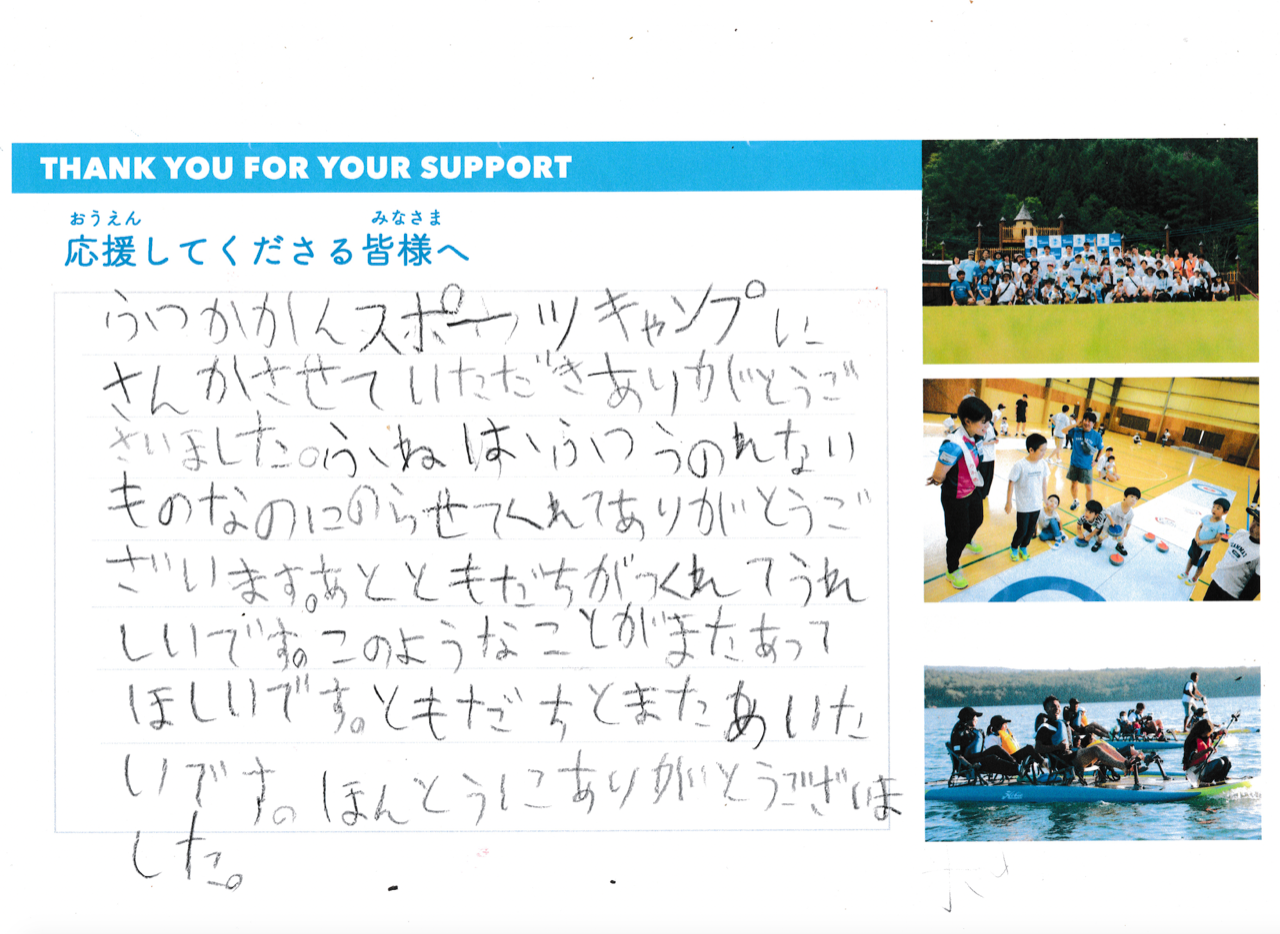 THANK YOU FOR YOUR SUPPORT
おうえん みなさま
応援してくださる皆様へ
ふつかかんスポーツキャンプに
さんかさせていただきありがとうご
ざいました。ふねはふつうのれない
ものなのにのらせてくれてありがとうご
ざいます。あとともだちがつくれてうれ
しいです。このようなことがまたあって
ほしいです。ともだちとまたあいた
いです。ほんとうにありがとうございま
した。